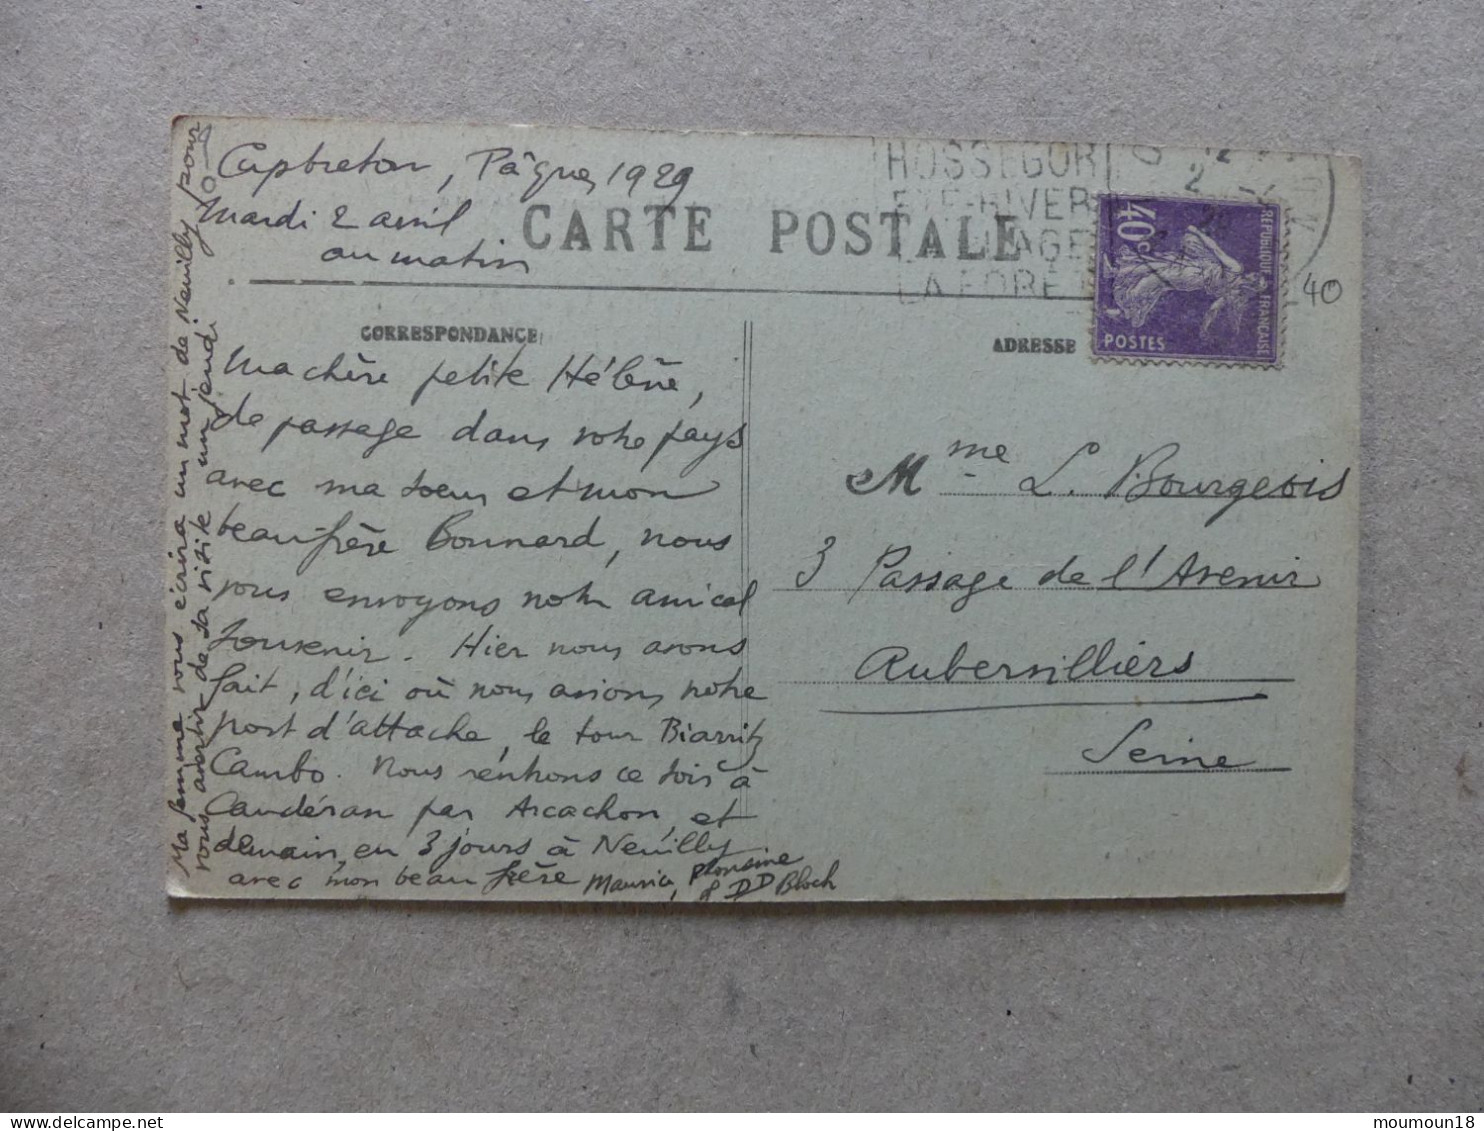 Capbreton, Pâques 1929
Mardi 2 avril
au matin
CARTE POSTALE
HOSSEGOR
ETE-HIVER
LA PLAGE
LA FORÊT
40c
REPUBLIQUE FRANÇAISE
POSTES
40
CORRESPONDANCE
ADRESSE
Ma chère petite Hélène,
de passage dans votre pays
avec ma soeur et mon
beau-frère Bonnard, nous
vous envoyons notre amical
souvenir. Hier nous avons
fait, d'ici où nous avions notre
port d'attache, le tour Biarritz
Cambo. Nous rentrons ce soir à
Caudéran par Arcachon, et
demain, en 3 jours à Neuilly
avec mon beau frère Maurice,
& Dr Bloch
Ma femme vous écrira un mot de Neuilly pour
vous avertir de sa visite un jeudi
Mme L. Bourgeois
3 Passage de l'Avenir
Aubervilliers
Seine
moumoun18